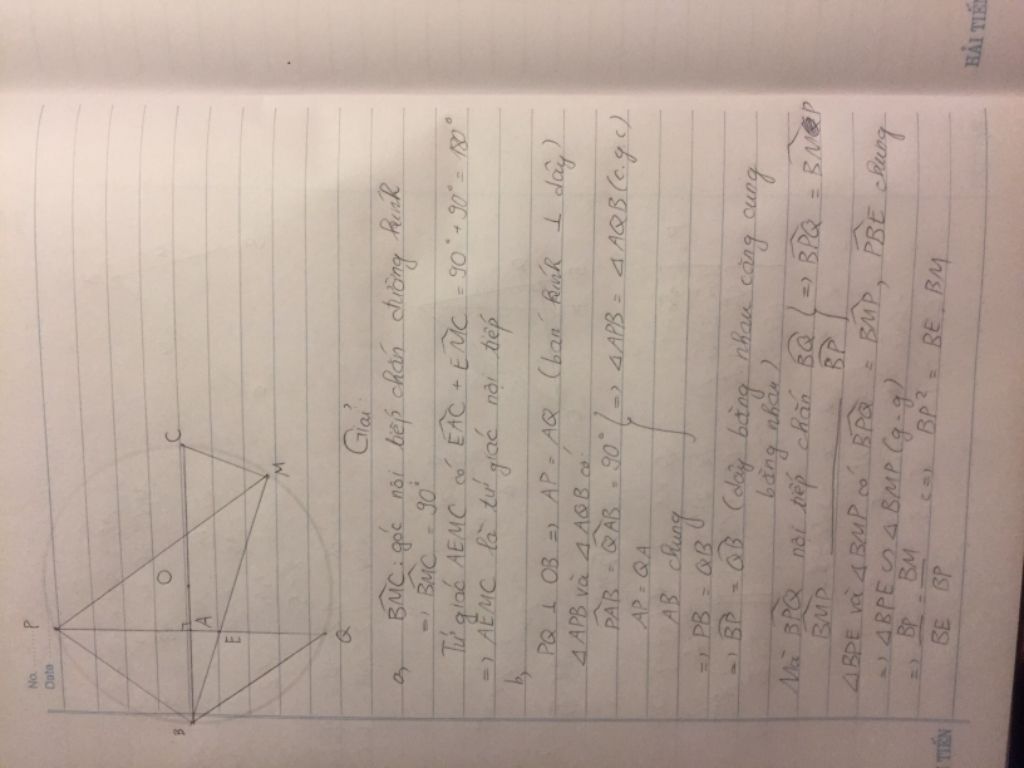 No.
Date
P
O
C
B
A
E
M
Q
Giải
a, B̂MC : góc nội tiếp chắn đường kính
=> B̂MC = 90°
Tứ giác AEMC có ÊAC + ÊMC = 90° + 90° = 180°
=> AEMC là tứ giác nội tiếp
b,
PQ ⊥ OB => AP = AQ (bán kính ⊥ dây)
ΔAPB và ΔAQB có
P̂AB = Q̂AB = 90°
AP = QA } => ΔAPB = ΔAQB (c.g.c)
AB chung
=> PB = QB
=> B̂P = Q̂B (dây bằng nhau căng cung
bằng nhau)
Mà B̂PQ nội tiếp chắn B̂Q } => B̂PQ = B̂MP
B̂MP B̂P
ΔBPE và ΔBMP có B̂PQ = B̂MP, P̂BE chung
=> ΔBPE ∽ ΔBMP (g.g)
=> BP/BE = BM/BP (=) BP² = BE . BM
HẢI TIẾN
TIẾN